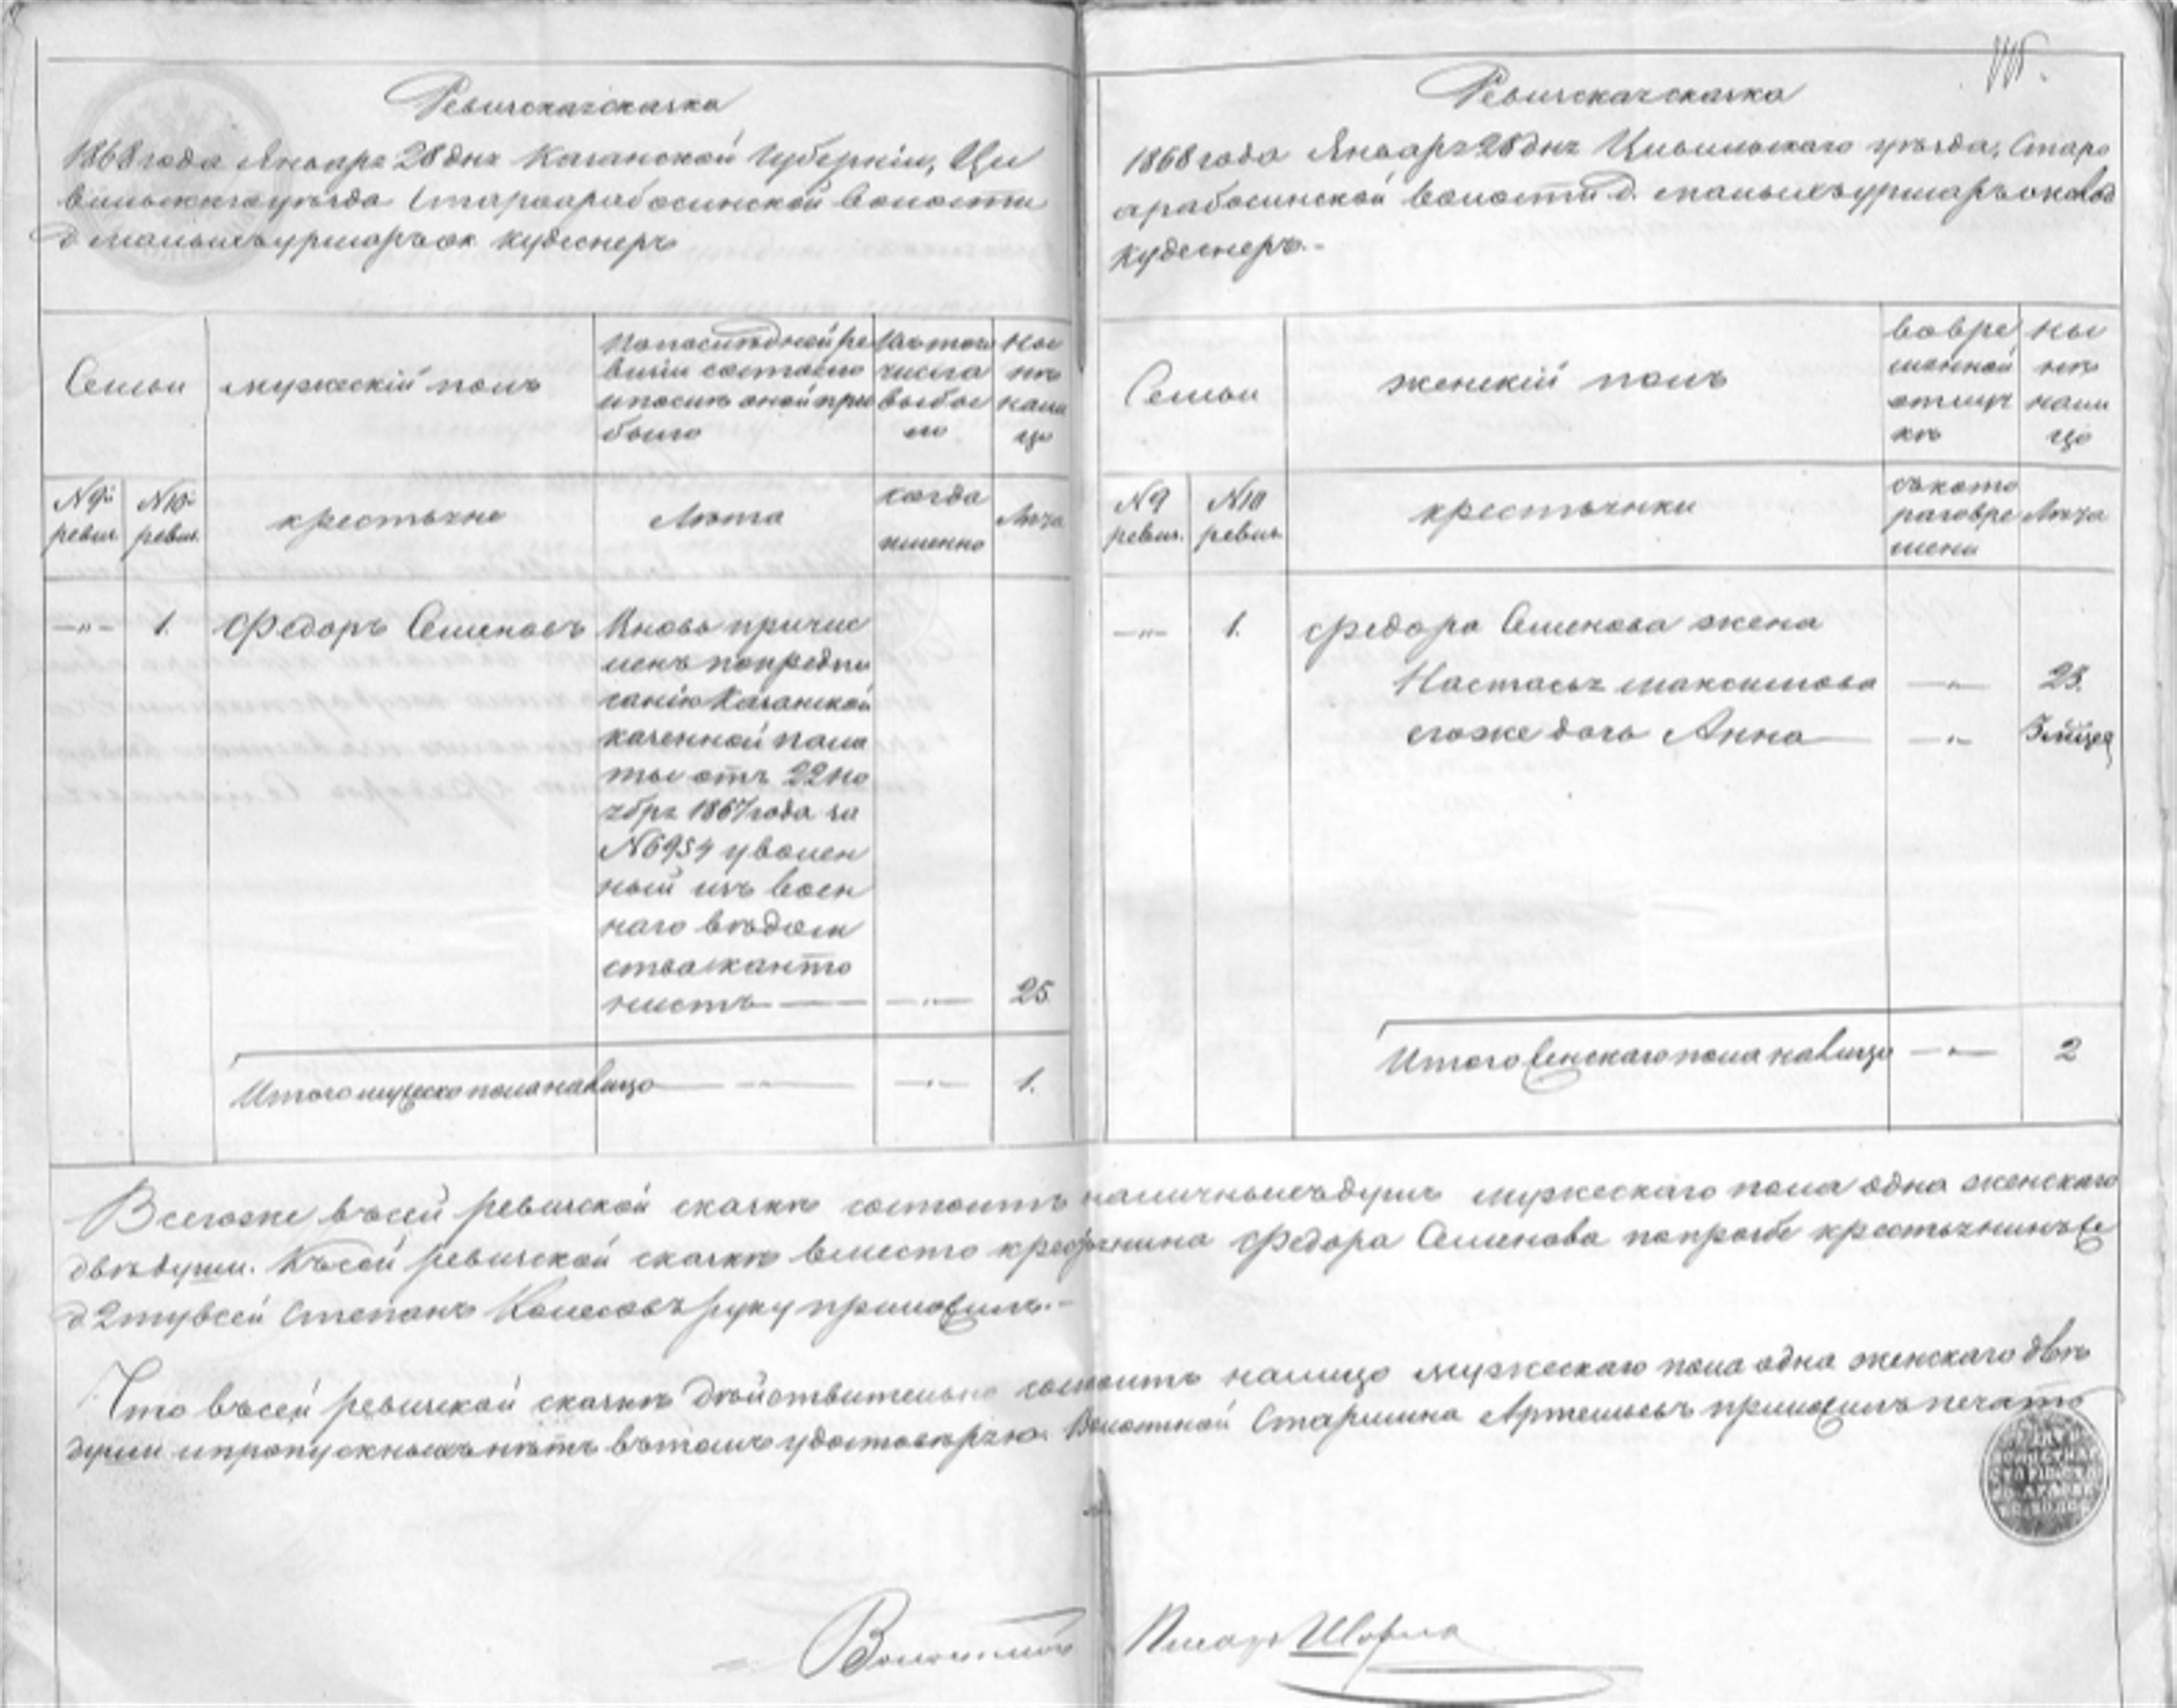 Ревизская сказка
1868 года Января 28 дня Казанской Губернiи, Ци
вильскаго уѣзда Староарабосинской волости
д Малыхъ урмаръ ок кудеснеръ
Семьи
мужескiй полъ
По послѣдней ре
визiи состояло
и послѣ оной при
было
Изъ того
числа
выбы
ло
Ны
нѣ
нали
цо
№ 9й
ревиз.
№ 10й
ревиз.
крестьяне
Лѣта
когда
именно
Лѣта
—„— 1. Федоръ Семеновъ
Вновь причис
ленъ по предпи
санiю Казанской
казенной пала
ты отъ 22 Но
ября 1867 года за
№ 6954 уволен
ный изъ воен
наго вѣдом
ства канто
нистъ — —„— 25.
Итого мужеска пола на лицо —„— —„— 1.
Ревизская сказка
1868 года Января 28 дня Цивильскаго уѣзда, Старо
арабосинской волости д. малыхъ урмаръ околод
кудеснеръ.-
Семьи
женскiй полъ
во вре
менной
отлуч
кѣ
ны
нѣ
нали
цо
№ 9
ревиз.
№ 10
ревиз.
крестьянки
съ кото
раго вре
мени
Лѣта
—„— 1. Федора Семенова жена
Настасья максимова —„— 23.
его же дочь Анна —„—
Итого женскаго пола на лицо —„— 2
Всего же въ сей ревизской сказкѣ состоитъ наличныхъ душъ мужескаго пола одна женскаго
двѣ души. Къ сей ревизской сказкѣ вместо крестьянина Федора Семенова по прозбе крестьянинъ же
д 2 тувсей Степанъ Колесовъ руку приложилъ.-
Что въ сей ревизской сказкѣ дѣйствительно состоитъ налицо мужескаго пола одна женскаго двѣ
души и пропускныхъ нѣтъ въ томъ удостовѣряю. Волостной Старшина Артемьевъ приложилъ печать
Волостной Писарь